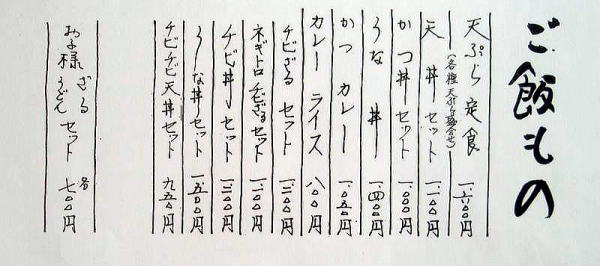 ご飯もの
天ぷら定食 一、六〇〇円
(各種天ぷら盛合せ)
天丼セット 一、一〇〇円
かつ丼セット 一、〇〇〇円
うな丼 一、四〇〇円
かつカレー 一、〇五〇円
カレーライス 八〇〇円
チビざるセット 一、二〇〇円
ネギトロチビざるセット 一、一〇〇円
チビ丼セット 一、三〇〇円
うな丼セット 一、五〇〇円
チビチビ天丼セット 九五〇円
お子様 ざる うどん セット 各 七〇〇円